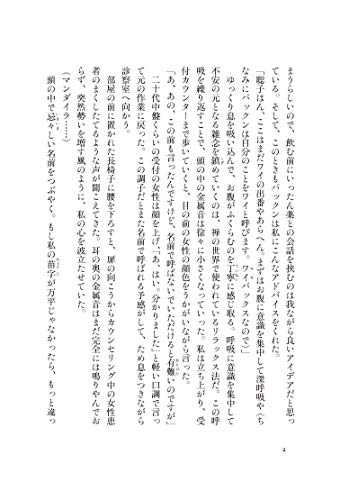 まうらしいので、飲む前にいったん薬との会話を挟むのは我ながら良いアイデアだと思っ
ている。そして、このときもパックンは私にこんなアドバイスをくれた。
「聡子はん、ここはまだワイの出番やあらへん。まずはお腹に意識を集中して深呼吸や（ち
なみにパックンは自分のことをワイと呼びます。ワイパックスなので）」
ゆっくり息を吸い込んで、お腹がふくらむのを丁寧に感じ取る。呼吸に意識を集中して
不安の元となる雑念を鎮めていくのは、禅の世界で使われているリラックス法だ。この呼
吸を繰り返すことで、頭の中の金属音は徐々に小さくなっていった。私は立ち上がり、受
付カウンターまで歩いていくと、目の前の女性の顔色をうかがいながら言った。
「あ、あの、この前も言ったんですけど、名前で呼ばないでいただけると有難いのですが」
二十代中盤くらいの受付の女性は顔を上げ、「あ、はい。分かりました」と軽い口調で言っ
て元の作業に戻った。この調子だとまた名前で呼ばれる予感がして、ため息をつきながら
診察室へ向かう。
部屋の前に置かれた長椅子に腰を下ろすと、扉の向こうからカウンセリング中の女性患
者のまくしたてるような声が聞こえてきた。耳の奥の金属音はまだ完全には鳴りやんでお
らず、突然勢いを増す風のように、私の心を波立たせていた。
（マンダイラ……）
頭の中で忌々しい名前をつぶやく。もし私の苗字が万平じゃなかったら、もっと違っ
4